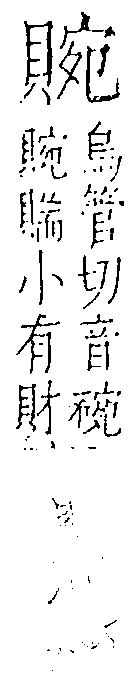 䝹
烏管切音碗
䝹小有財